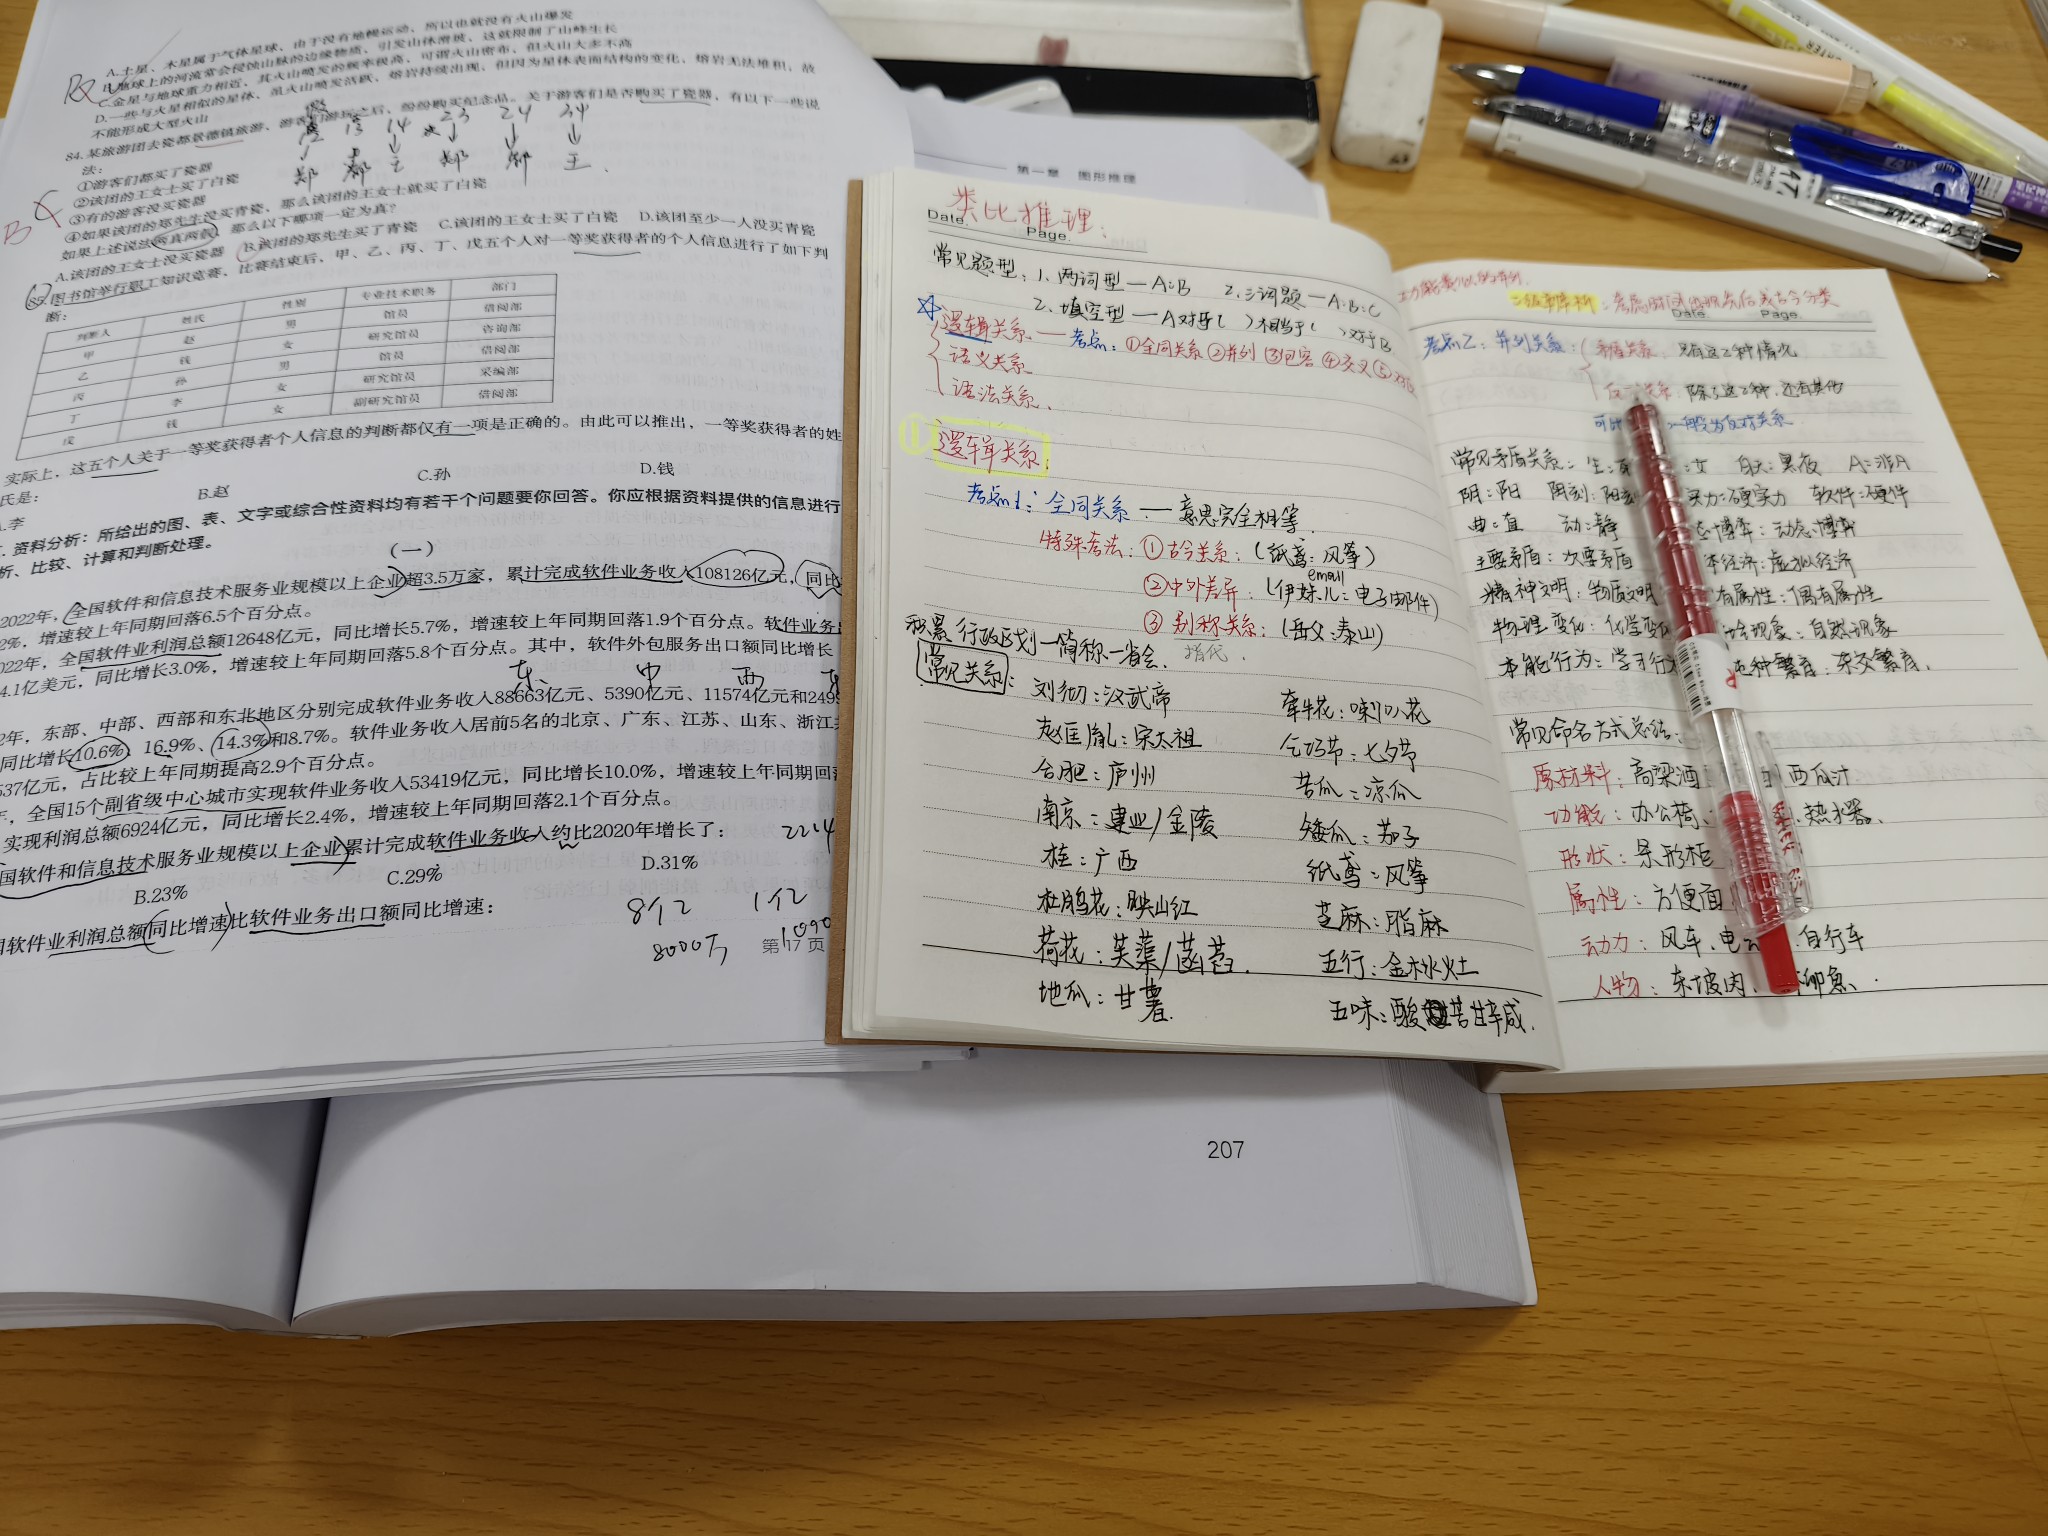 A.土星、木星属于气体星球，由于没有地幔运动，所以也就没有火山爆发
B.地球上的河流常会侵蚀山脉的边缘物质，引发山体滑坡，这就限制了山峰生长
C.金星与地球重力相近，其火山喷发的频率极高，可谓火山密布，但火山大多不高
D.一些与火星相似的星体，虽火山喷发活跃，熔岩持续出现，但因为星体表面结构的变化，熔岩无法堆积，故
不能形成大型火山
84.某旅游团去瓷都景德镇旅游，游客们游玩之后，纷纷购买纪念品。关于游客们是否购买了瓷器，有以下一些说
法：
13 14 23 24 34
郑 王 郑 郑 王
①游客们都买了瓷器
②该团的王女士买了白瓷
③有的游客没买瓷器
④如果该团的郑先生没买青瓷，那么该团的王女士就买了白瓷
如果上述说法两真两假，那么以下哪项一定为真？
A.该团的王女士没买瓷器 B.该团的郑先生买了青瓷 C.该团的王女士买了白瓷 D.该团至少一人没买青瓷
B
85.图书馆举行职工知识竞赛，比赛结束后，甲、乙、丙、丁、戊五个人对一等奖获得者的个人信息进行了如下判
断：
判断人 姓氏 性别 专业技术职务 部门
甲 赵 男 馆员 借阅部
乙 钱 女 研究馆员 咨询部
丙 孙 男 馆员 借阅部
丁 李 女 研究馆员 采编部
戊 钱 女 副研究馆员 借阅部
实际上，这五个人关于一等奖获得者个人信息的判断都仅有一项是正确的。由此可以推出，一等奖获得者的姓
氏是：
.李 B.赵 C.孙 D.钱
资料分析：所给出的图、表、文字或综合性资料均有若干个问题要你回答。你应根据资料提供的信息进行
析、比较、计算和判断处理。
（一）
2022年，全国软件和信息技术服务业规模以上企业超3.5万家，累计完成软件业务收入108126亿元，同比
2%，增速较上年同期回落6.5个百分点。
022年，全国软件业利润总额12648亿元，同比增长5.7%，增速较上年同期回落1.9个百分点。软件业务
4.1亿美元，同比增长3.0%，增速较上年同期回落5.8个百分点。其中，软件外包服务出口额同比增长
东 中 西
2年，东部、中部、西部和东北地区分别完成软件业务收入88663亿元、5390亿元、11574亿元和249
同比增长10.6%、16.9%、14.3%和8.7%。软件业务收入居前5名的北京、广东、江苏、山东、浙江
537亿元，占比较上年同期提高2.9个百分点。
，全国15个副省级中心城市实现软件业务收入53419亿元，同比增长10.0%，增速较上年同期回
实现利润总额6924亿元，同比增长2.4%，增速较上年同期回落2.1个百分点。
国软件和信息技术服务业规模以上企业累计完成软件业务收入约比2020年增长了：
B.23% C.29% D.31%
软件业利润总额同比增速比软件业务出口额同比增速：
8个亿 1个亿
8000万
第17页
第一章 图形推理
207
Date. Page.
类比推理：
常见题型：1.两词型—A:B 2.三词题—A:B:C
2.填空型—A对于( )相当于( )对于B
逻辑关系——考点：①全同关系②并列③包容④交叉⑤
语义关系
语法关系
①逻辑关系：
考点1：全同关系——意思完全相等.
特殊考法：①古今关系：(纸鸢：风筝)
②中外差异：(伊妹儿：电子邮件)
email
③别称关系：(岳父：泰山)
积累行政区划—简称—省会. 指代.
常见关系：
刘彻：汉武帝 牵牛花：喇叭花
赵匡胤：宋太祖 乞巧节：七夕节
合肥：庐州 苦瓜：凉瓜
南京：建业/金陵 矮瓜：茄子
桂：广西 纸鸢：风筝
杜鹃花：映山红 芝麻：脂麻
荷花：芙蕖/菡萏. 五行：金木水火土
地瓜：甘薯. 五味：酸苦甘辛咸.
二级辨析：考虑时间的先后或古今分类
Date. Page.
考点2：并列关系：矛盾关系：只有这2种情况
关系：除了这2种，还有其他
一般为反对关系.
常见矛盾关系：生： 女 白天：黑夜 A：非A
阴：阳 阴刻：阳 实力：硬实力 软件：硬件
曲：直 动：静 博弈：动态博弈
主要矛盾：次要矛盾 经济：虚拟经济
精神文明：物质文明 有属性：偶有属性
物理变化：化学变 现象：自然现象
本能行为：学习行 种繁育：杂交繁育.
常见命名方式总结：
原材料：高粱酒 西瓜汁
功能：办公椅、 、热水器.
形状：条形柜
属性：方便面
动力：风车、电 、自行车
人物：东坡肉、